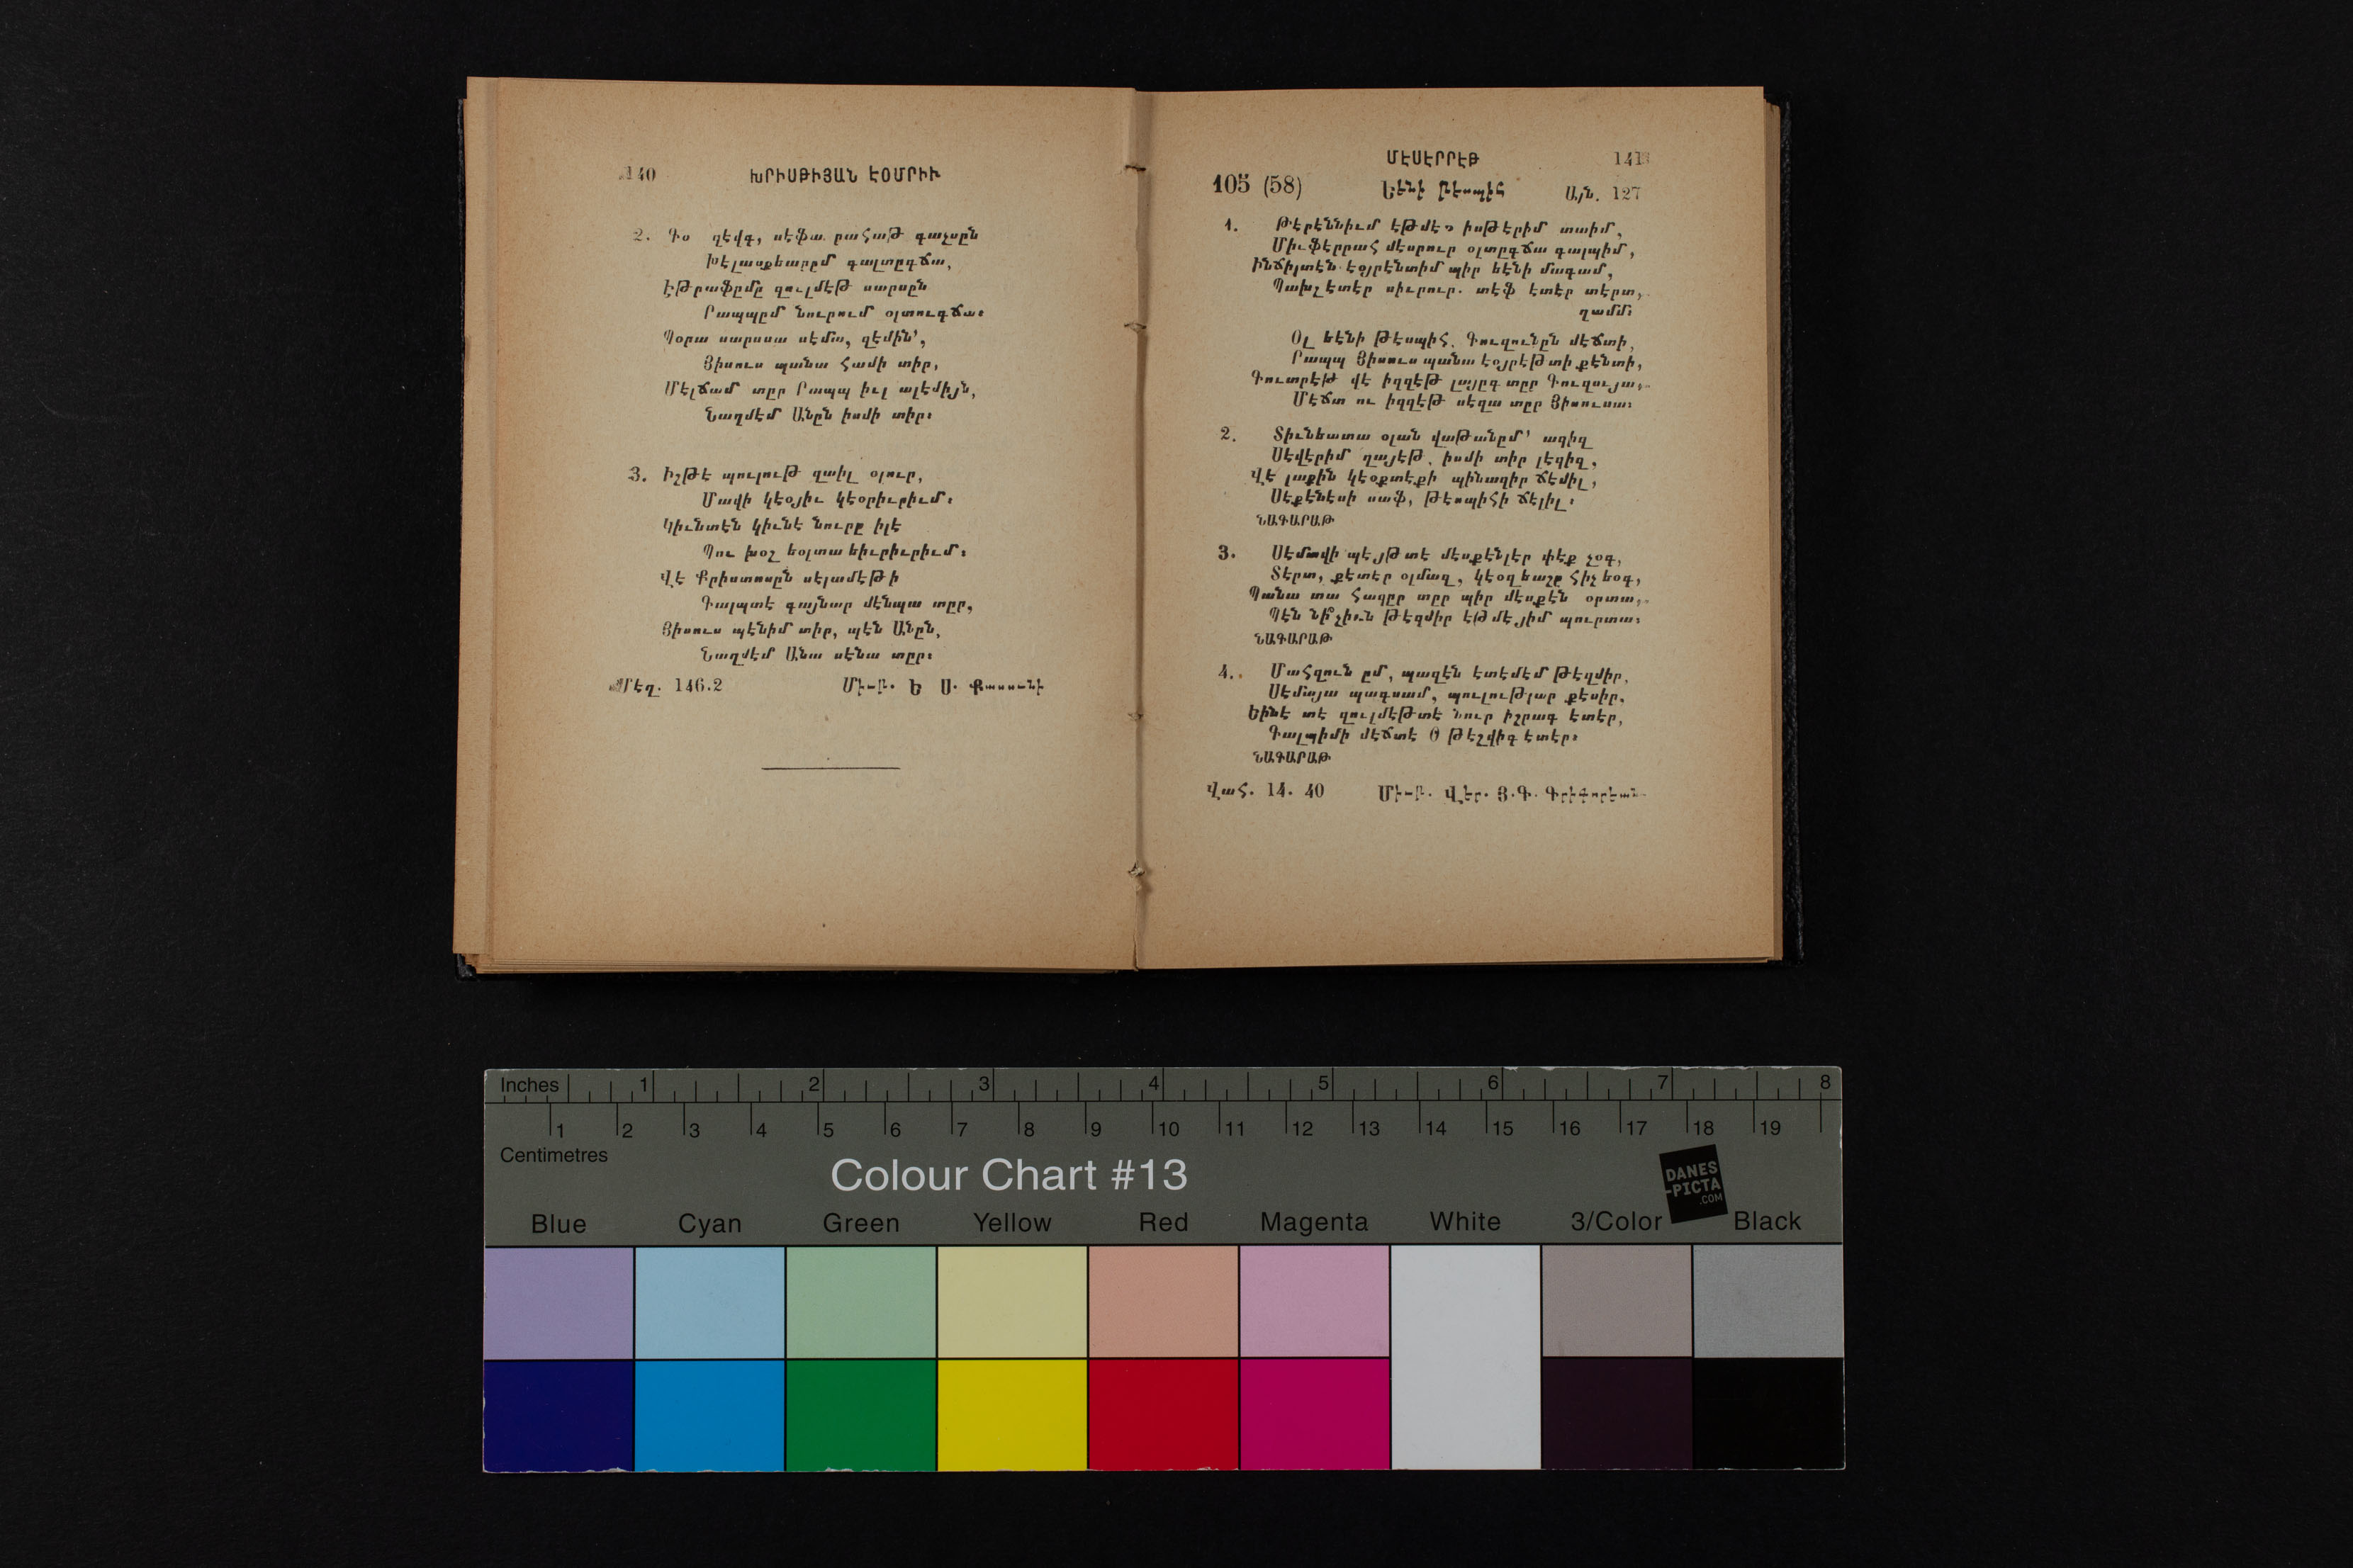 140
ԽՐԻՍԹԻՅԱՆ ԷՕՄՐԻՒ
2. Գօ զէվգ, սէֆա րահաթ գաչսըն
Խէլասքեարըմ գալտըգճա,
Էթրաֆըմը զուլմէթ սարսըն
Րապպըմ նուրում օլտուգճա։
Պօրա սարսսա սէմա, զէմին՛,
Յիսուս պանա համի տիր,
Մէլճամ տըր Րապպ իւլ ալէմիյն,
Նաղմէմ Անըն իսմի տիր։
3. Իշթէ պուլութ զաիլ օլուր,
Մավի կէօյիւ կէօրիւրիւմ։
Կիւնտէն կիւնէ նուրը իլէ
Պու խօշ եօլտա եիւրիւրիւմ։
Վէ Քրիստոսըն սէլամէթի
Գալպտէ գայնար մէնպա տըր,
Յիսուս պէնիմ տիր, պէն Անըն,
Նաղմէմ Անա սէնա տըր։
Մեզ. 146.2
Միւր. Ե Ս. Քասունի
ՄԷՍԷՐՐԷԹ
141
105 (58)
Եէնի Թէսպիհ
Այն. 127
1. Թէրէննիւմ էթմէտ իսթէրիմ տաիմ,
Միւֆէրրահ մէսրուր օլտըգճա գալպիմ,
Ինճիլտէն էօյրէնտիմ պիր եէնի մագամ,
Պախշ էտէր սիւրուր. տէֆ էտէր տէրտ,
ղամմ։
Օլ եէնի թէսպիհ. Գուզունըն մէճտի,
Րապպ Յիսուս պանա էօյրէթտի քէնտի,
Գուտրէթ վէ իզզէթ լայըգ տըր Գուզույա,
Մէճտ ու իզզէթ սէզա տըր Յիսուսա։
2. Տիւնեատա օլան վաթանըմ՛ ազիզ
Սէվէրիմ ղայէթ. իսմի տիր լէզիզ,
Վէ լաքին կէօքտէքի պինատիր ճէմիլ,
Սէքէնէսի սաֆ, թէսպիհի ճէլիլ։
ՆԱԳԱՐԱԹ
3. Սէմավի պէյթտէ մէսքէնլէր փէք չօգ,
Տէրտ, քէտէր օլմազ, կէօզ եաշը հիչ եօգ,
Պանա տա հազըր տըր պիր մէսքէն օրտա,
Պէն նի՞չիւն թէզմիր էթմէյիմ պուրտա։
ՆԱԳԱՐԱԹ
4. Մահզուն ըմ, պազէն էտէմէմ թէզմիր,
Սէմայա պագսամ, պուլութլար քէսիր,
Եինէ տէ զուլմէթտէ նուր իշրագ էտէր,
Գալպիմի մէճտէ Օ թէշվիգ էտէր։
ՆԱԳԱՐԱԹ
Վահ. 14. 40
Միւր. Վեր. Յ.Գ. Գրիգորեան
Inches 1 2 3 4 5 6 7 8
1 2 3 4 5 6 7 8 9 10 11 12 13 14 15 16 17 18 19
Centimetres
Colour Chart #13
DANES
-PICTA
.COM
Blue Cyan Green Yellow Red Magenta White 3/Color Black